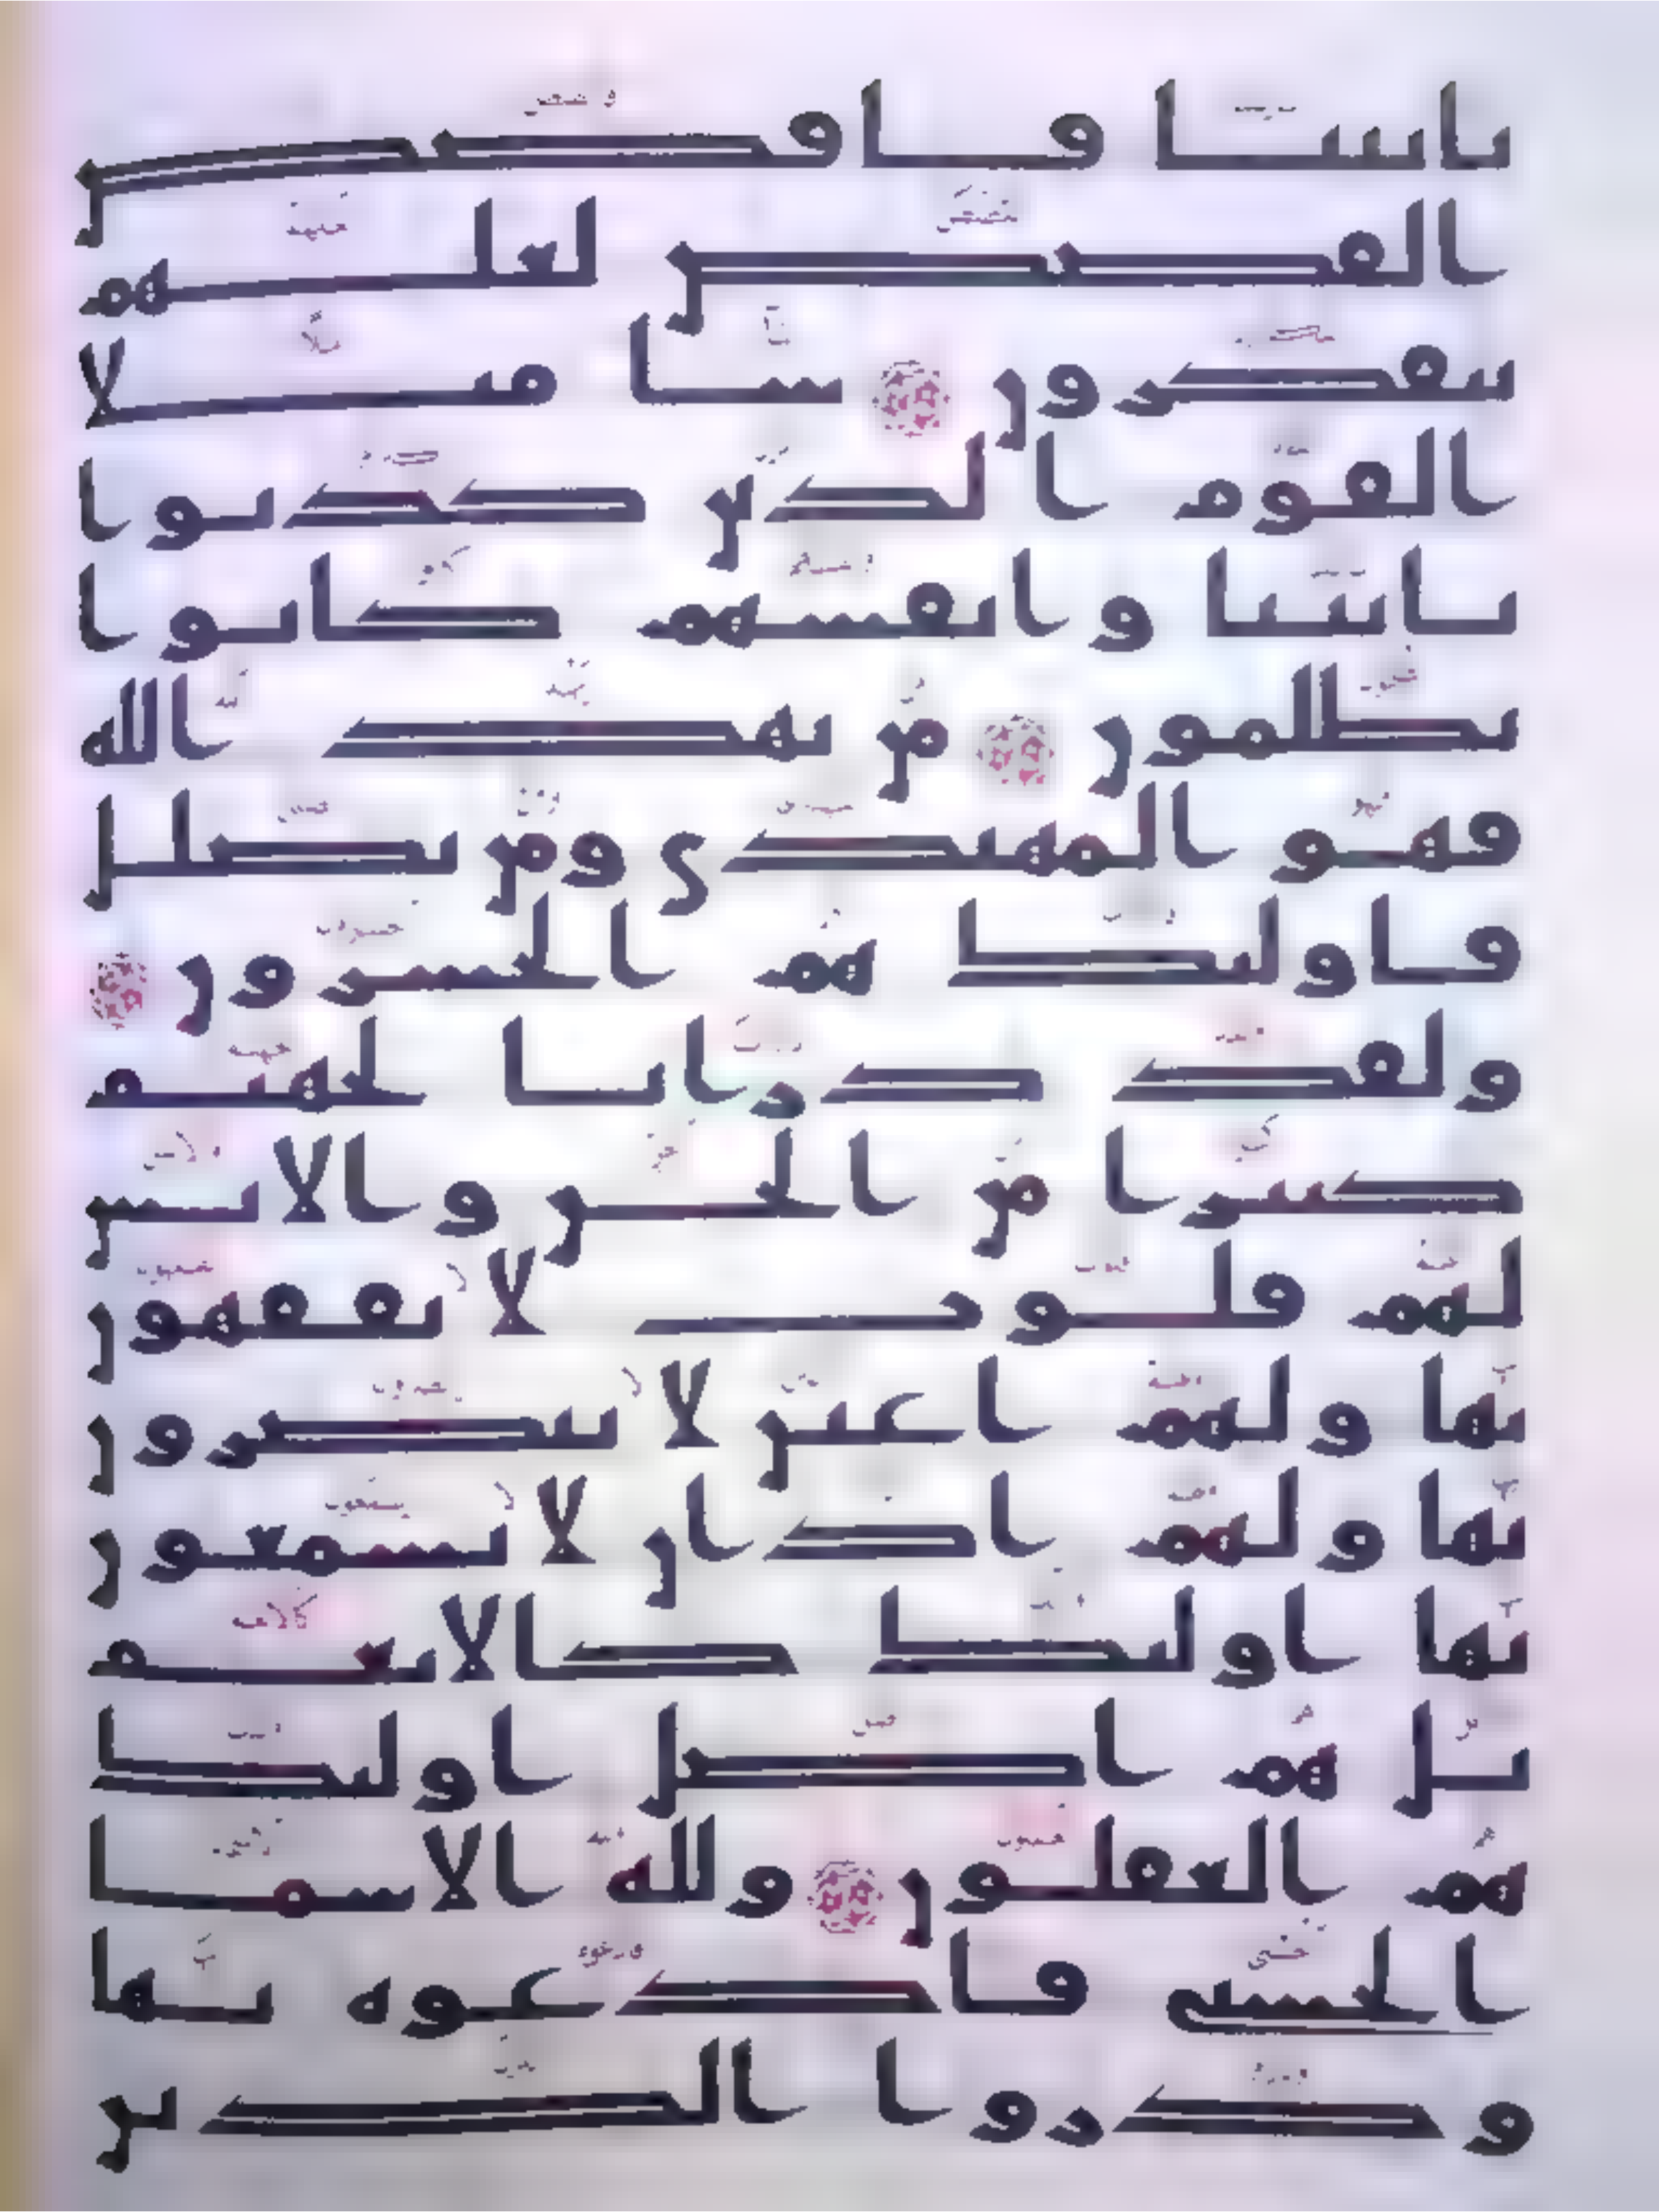 باىىىا فاقصص
القصص لعلهم
ىىفكرون سا مىلا
القوم الذىن كذبوا
باىىىا وانفسهم كانوا
ىظلمون من ىهد الله
فهو المهتدى ومن ىضلل
فاولىك هم الخسرون
ولقد ذرانا لجهنم
كثىرا من الجن والانس
لهم قلوب لا ىفقهون
بها ولهم اعىن لا ىبصرون
بها ولهم اذان لا ىسمعون
بها اولىك كالانعم
بل هم اضل اولىك
هم الغفلون ولله الاسما
الحسنى فادعوه بها
وذروا الذىن